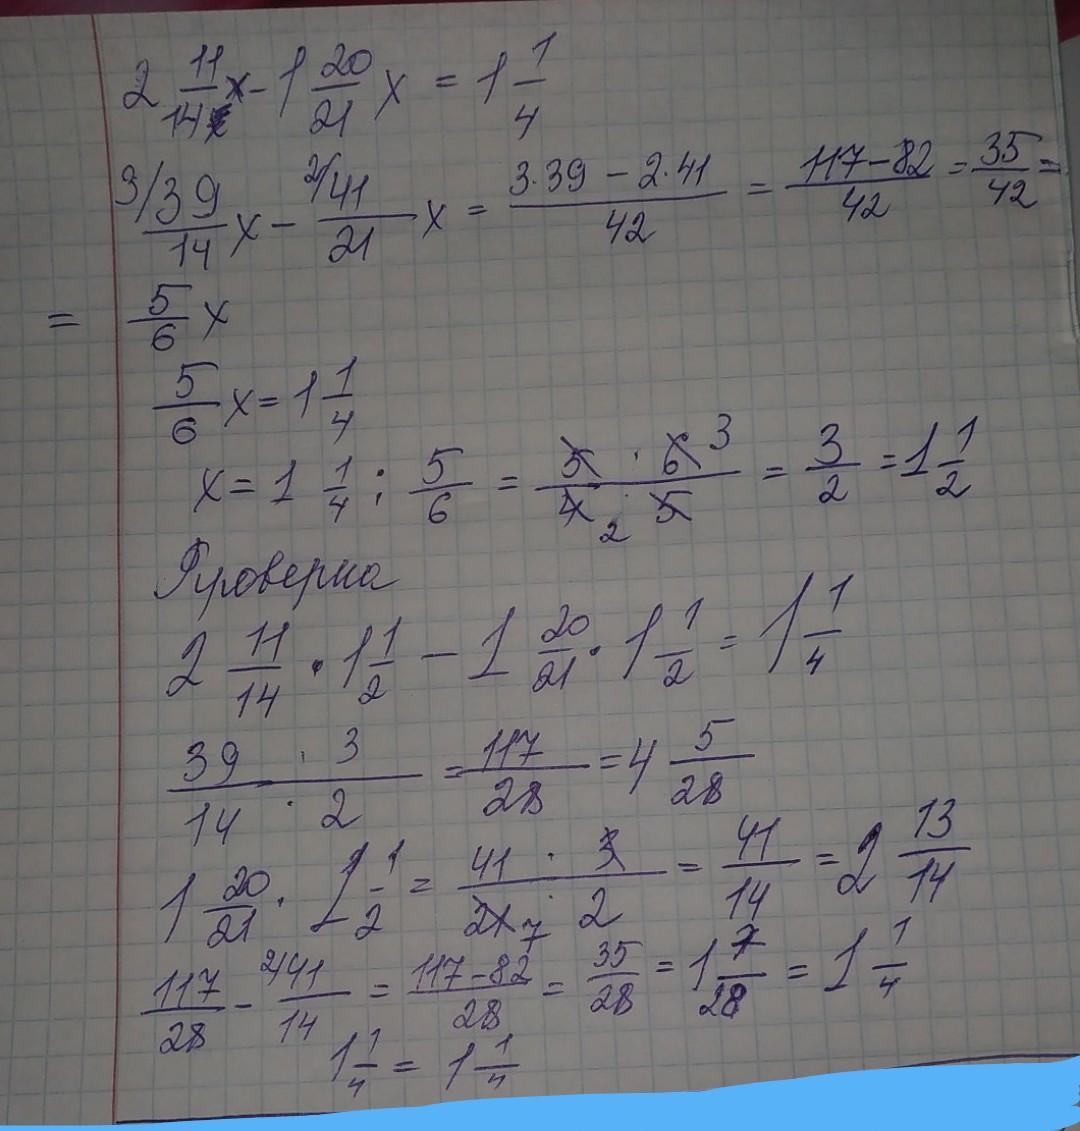 2 11/14 x - 1 20/21 x = 1 1/4
3/ 39/14 x - 2/ 41/21 x = 3·39 - 2·41/42 = 117-82/42 = 35/42 =
= 5/6 x
5/6 x = 1 1/4
x = 1 1/4 : 5/6 = 5 · 6 3/4 2 · 5 = 3/2 = 1 1/2
Проверка
2 11/14 · 1 1/2 - 1 20/21 · 1 1/2 = 1 1/4
39 · 3/14 · 2 = 117/28 = 4 5/28
1 20/21 · 1 1/2 = 41 · 3/21 7 2 = 41/14 = 2 13/14
117/28 - 2/ 41/14 = 117-82/28 = 35/28 = 1 7/28 = 1 1/4
1 1/4 = 1 1/4